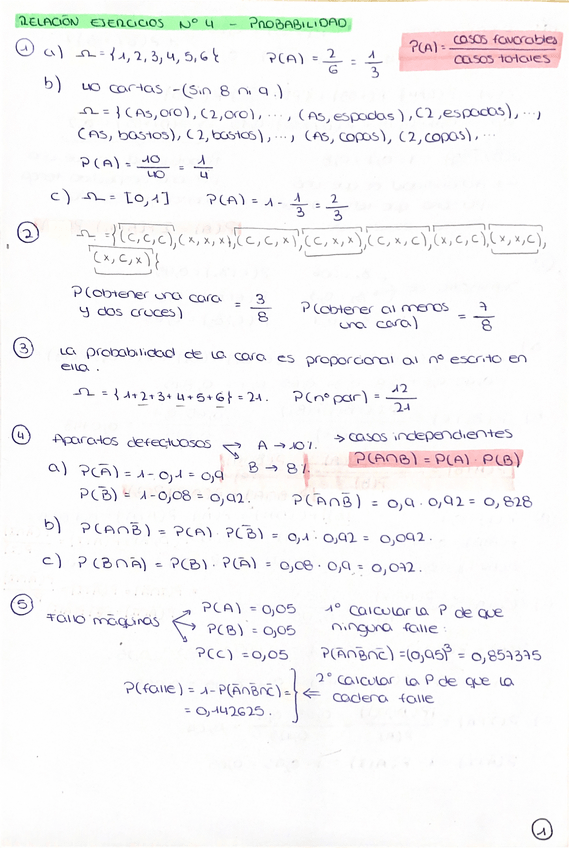 RELACIÓN EJERCICIOS Nº 4 - PROBABILIDAD
① a) Ω = {1, 2, 3, 4, 5, 6} P(A) = 2/6 = 1/3 P(A) = casos favorables / casos totales
b) 40 cartas - (sin 8 ni 9.)
Ω = {(As, oro), (2, oro), ..., (As, espadas), (2, espadas), ...,
(As, bastos), (2, bastos), ..., (As, copas), (2, copas), ...
P(A) = 10/40 = 1/4
c) Ω = [0, 1] P(A) = 1 - 1/3 = 2/3
② Ω = {(c, c, c), (x, x, x), (c, c, x), (c, x, x), (c, x, c), (x, c, c), (x, x, c),
(x, c, x)}
P(obtener una cara y dos cruces) = 3/8 P(obtener al menos una cara) = 7/8
③ La probabilidad de la cara es proporcional al nº escrito en
ella.
Ω = {1+2+3+4+5+6} = 21. P(nº par) = 12/21
④ Aparatos defectuosos A → 10% → casos independientes
B → 8% P(A∩B) = P(A) · P(B)
a) P(Ā) = 1 - 0,1 = 0,9
P(B̄) = 1 - 0,08 = 0,92. P(Ā∩B̄) = 0,9 · 0,92 = 0,828
b) P(A∩B̄) = P(A) · P(B̄) = 0,1 · 0,92 = 0,092.
c) P(B∩Ā) = P(B) · P(Ā) = 0,08 · 0,9 = 0,072.
⑤ Fallo máquinas P(A) = 0,05 1º calcular la P de que
P(B) = 0,05 ninguna falle:
P(C) = 0,05 P(Ā∩B̄∩C̄) = (0,95)³ = 0,857375
P(falle) = 1 - P(Ā∩B̄∩C̄) = 2º calcular la P de que la
= 0,142625. ⇐ cadena falle
1